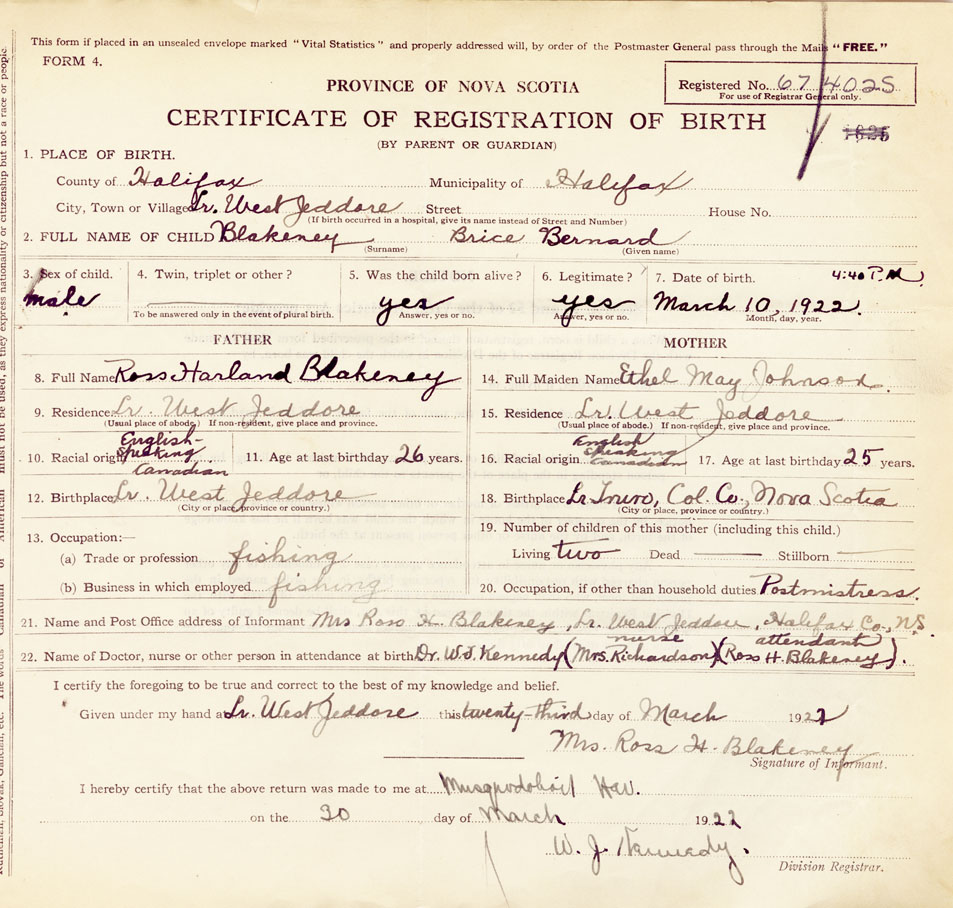 This form if placed in an unsealed envelope marked "Vital Statistics" and properly addressed will, by order of the Postmaster General pass through the Mails "FREE."
FORM 4.
PROVINCE OF NOVA SCOTIA
Registered No. 67 4025
For use of Registrar General only.
CERTIFICATE OF REGISTRATION OF BIRTH
(BY PARENT OR GUARDIAN)
1. PLACE OF BIRTH.
County of Halifax Municipality of Halifax
City, Town or Village Lr. West Jeddore Street House No.
(If birth occurred in a hospital, give its name instead of Street and Number)
2. FULL NAME OF CHILD Blakeney Brice Bernard
(Surname) (Given name)
3. Sex of child. 4. Twin, triplet or other? 5. Was the child born alive? 6. Legitimate? 7. Date of birth. 4:40 P.M.
male yes yes March 10, 1922.
To be answered only in the event of plural birth. Answer, yes or no. Answer, yes or no. Month, day, year.
FATHER MOTHER
8. Full Name Ross Harland Blakeney 14. Full Maiden Name Ethel May Johnson.
9. Residence Lr. West Jeddore 15. Residence Lr. West Jeddore
(Usual place of abode.) If non-resident, give place and province. (Usual place of abode.) If non-resident, give place and province.
10. Racial origin English-Speaking Canadian 11. Age at last birthday 26 years. 16. Racial origin English Speaking Canadian 17. Age at last birthday 25 years.
12. Birthplace Lr. West Jeddore 18. Birthplace Lr Truro, Col. Co., Nova Scotia
(City or place, province or country.) (City or place, province or country.)
13. Occupation:— 19. Number of children of this mother (including this child.)
(a) Trade or profession fishing Living two Dead Stillborn
(b) Business in which employed fishing 20. Occupation, if other than household duties Postmistress.
21. Name and Post Office address of Informant Mrs Ross H. Blakeney, Lr. West Jeddore, Halifax Co., N.S.
nurse attendant
22. Name of Doctor, nurse or other person in attendance at birth Dr. W.J. Kennedy (Mrs. Richardson) (Ross H. Blakeney).
I certify the foregoing to be true and correct to the best of my knowledge and belief.
Given under my hand at Lr. West Jeddore this twenty-third day of March 1922
Mrs. Ross H. Blakeney
Signature of Informant.
I hereby certify that the above return was made to me at Musquodoboit Har.
on the 30 day of March 1922
W. J. Kennedy.
Division Registrar.